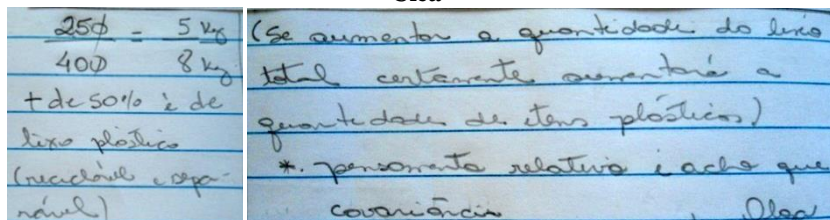 250 = 5 kg
400 8 kg
+ de 50% é de
lixo plástico
(reciclável e sepa-
rável)
(Se aumentar a quantidade do lixo
total certamente aumentará a
quantidade de itens plásticos)
*. pensamento relativo e acho que
covariância Olga